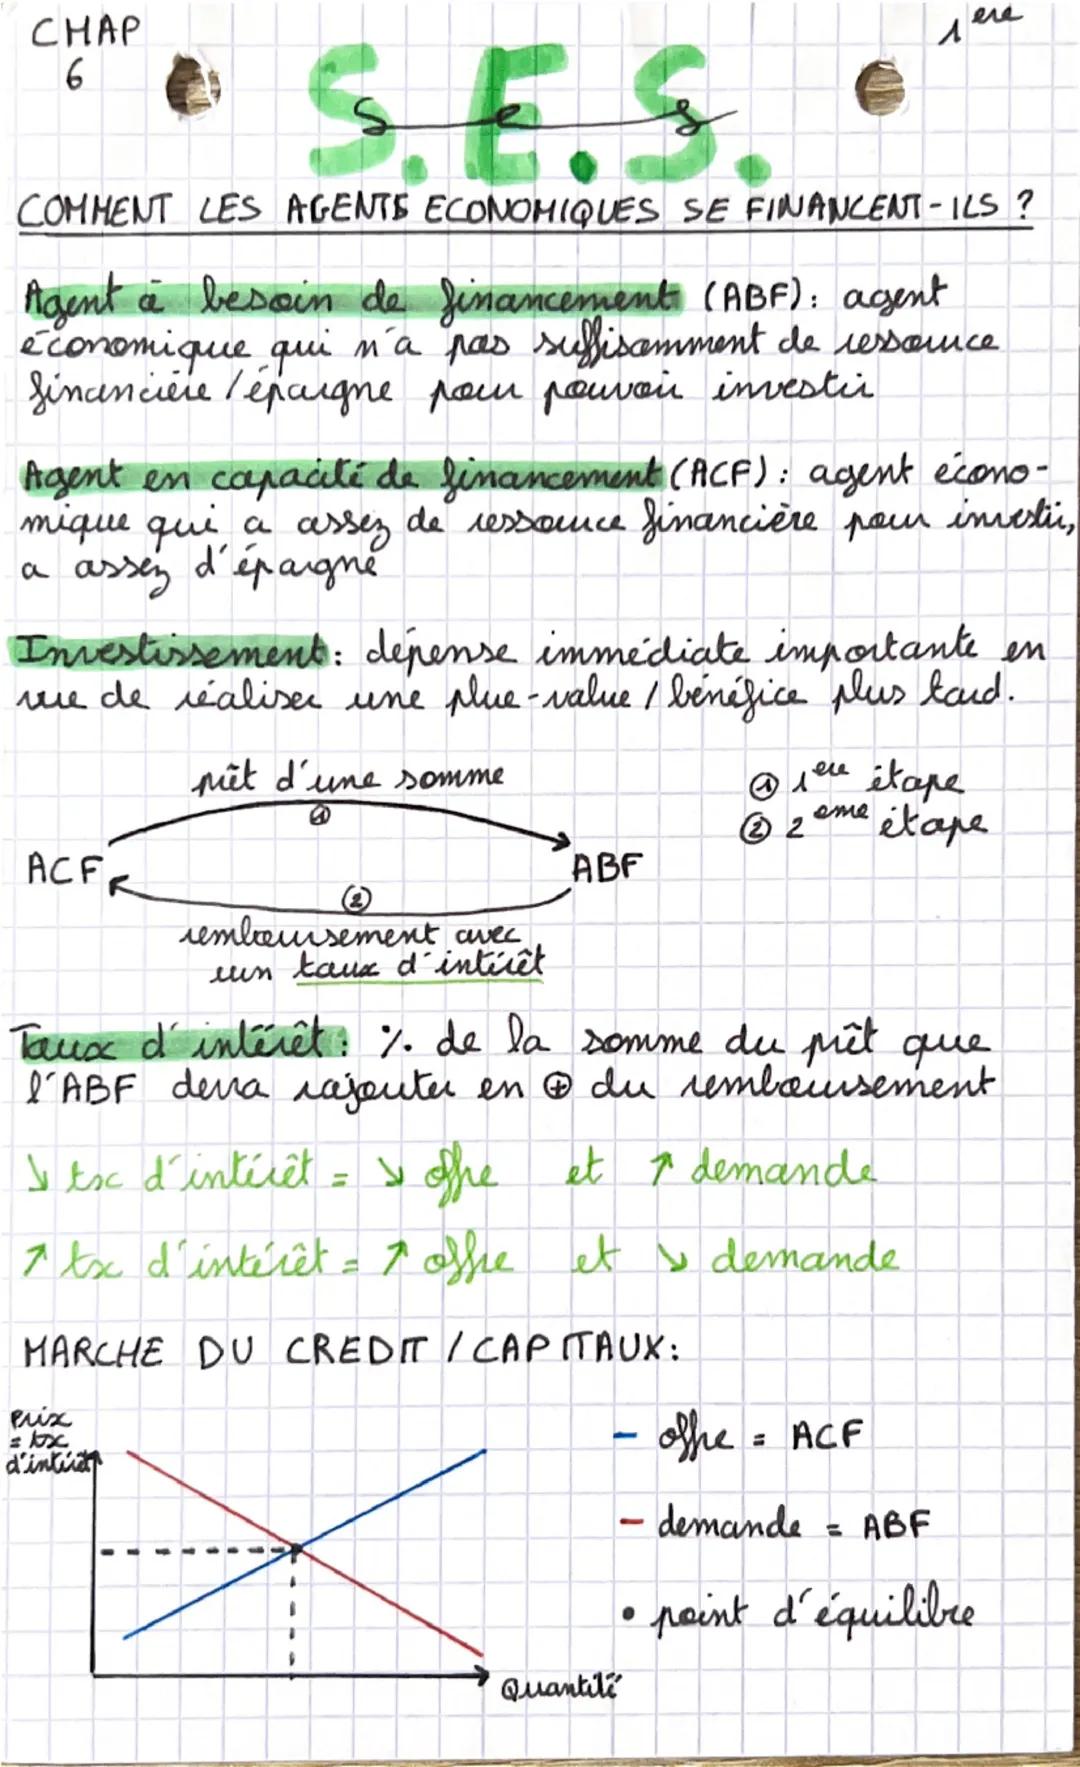 CHAP
6
1ere
S.E.S.
ses
COMMENT LES AGENTS ECONOMIQUES SE FINANCENT-ILS ?
Agent à besoin de financement (ABF): agent
économique qui n'a pas suffisamment de ressource
financière / épargne pour pouvoir investir
Agent en capacité de financement (ACF): agent écono-
mique qui a assez de ressource financière pour investir,
a assez d'épargne
Investissement: dépense immédiate importante en
vue de réaliser une plue-value / bénéfice plus tard.
prêt d'une somme
①
① 1ere étape
② 2eme étape
ACF
ABF
②
remboursement avec
un taux d'intérêt
Taux d'intérêt: % de la somme du prêt que
l'ABF devra rajouter en ⊕ du remboursement
↘ tx d'intérêt = ↘ offre et ↗ demande
↗ tx d'intérêt = ↗ offre et ↘ demande
MARCHE DU CREDIT / CAPITAUX:
Prix
= tx
d'intérêt
- offre = ACF
- demande = ABF
• point d'équilibre
Quantité